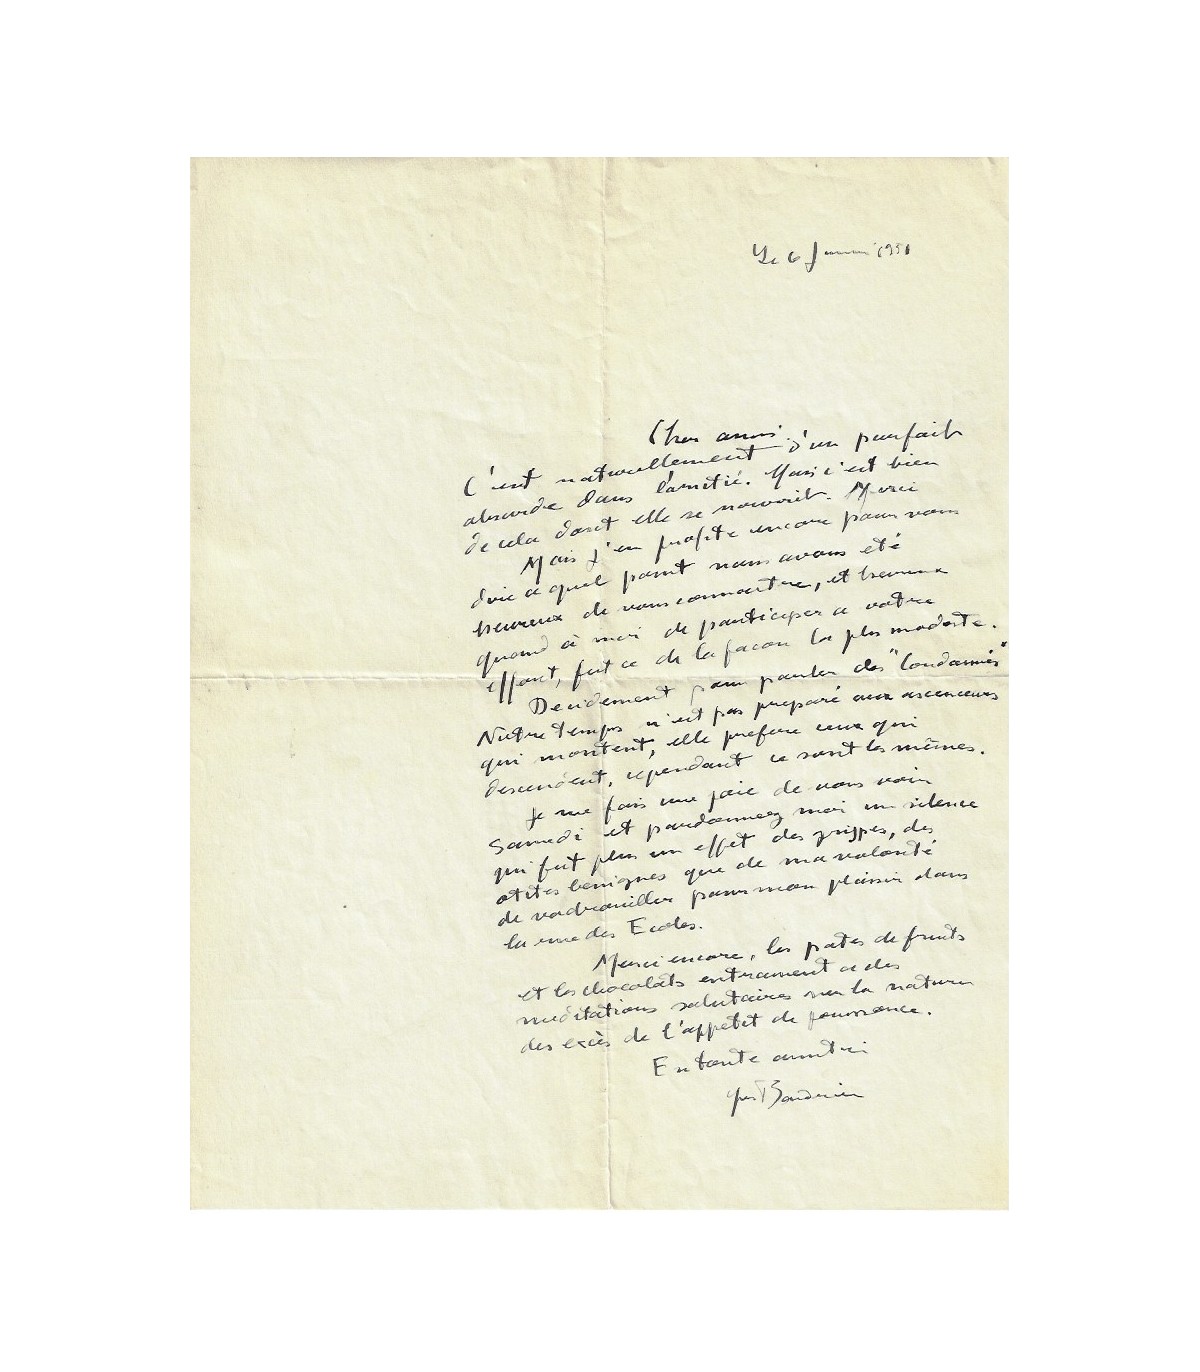 Le 6 Janvier 1951
Cher ami.
C'est naturellement d'un parfait
absurde dans l'amitié. Mais c'est bien
de cela dont elle se nourrit. Merci
Mais j'en profite encore pour vous
dire a quel point nous avons été
heureux de vous connaitre, et heureux
quand à moi de participer a votre
effort, fut ce de la façon la plus modeste.
Decidement pour parler des "Condamnés"
Notre temps n'est pas preparé aux ascenceurs
qui montent, elle prefere ceux qui
descendent, cependant ce sont les mêmes.
Je me fais une joie de vous voir
Samedi et pardonnez moi un silence
qui fut plus un effet des grippes, des
otites benignes que de ma volonté
de vadrouiller pour mon plaisir dans
la rue des Ecoles.
Merci encore, les pates de fruits
et les chocolats entrainent a des
meditations salutaires sur la nature
des excès de l'appetit de jouissance.
En toute amitié
Yves Baudrier